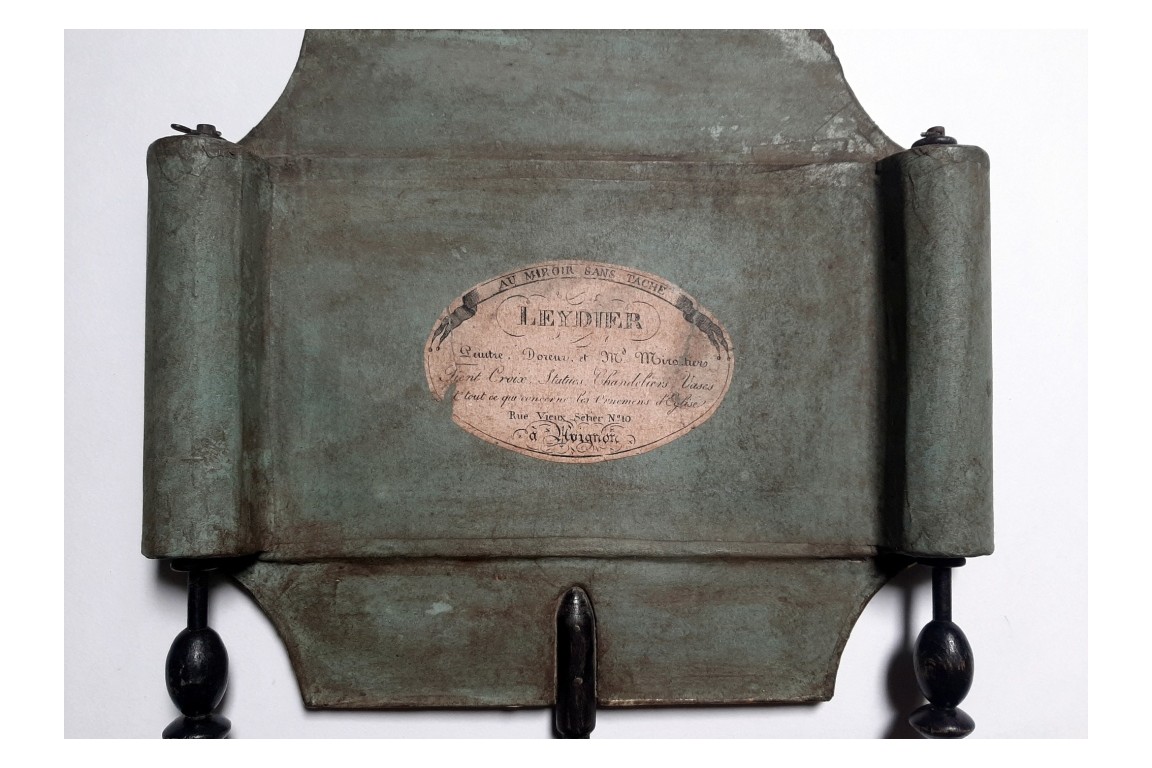 AU MIROIR SANS TACHE
LEYDIER
Peintre, Doreur, et M.d Miroitiers
Tient Croix, Statues, Chandeliers, Vases
et tout ce qui concerne les Ornemens d'Eglise
Rue Vieux Setier N.º 10
à Avignon